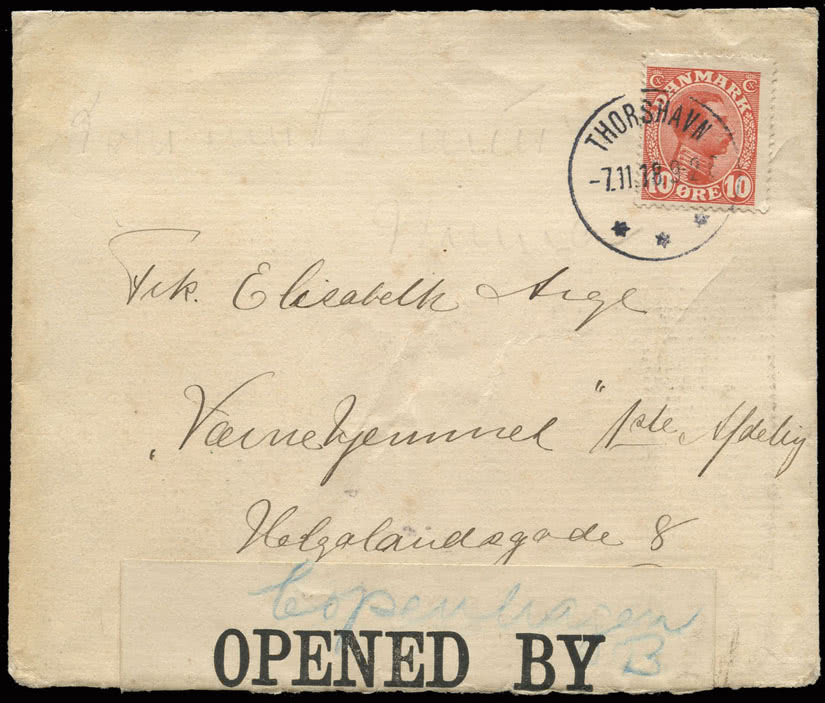 DANMARK
10 ØRE 10
THORSHAVN
-7.11.18
Frk. Elisabeth Arge
"Værnehjemmet" 1ste Afdelig
Helgolandsgade 8
Copenhagen
B
OPENED BY